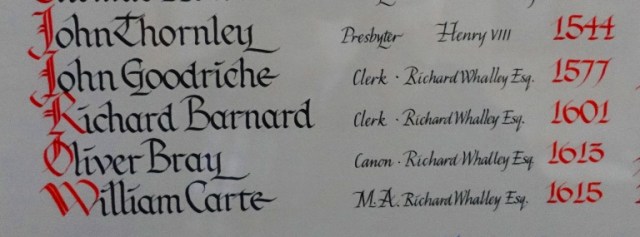 John Thornley Presbyter Henry VIII 1544
John Goodriche Clerk · Richard Whalley Esq. 1577
Richard Barnard Clerk · Richard Whalley Esq. 1601
Oliver Bray Canon · Richard Whalley Esq. 1613
William Carte M.A. Richard Whalley Esq. 1615